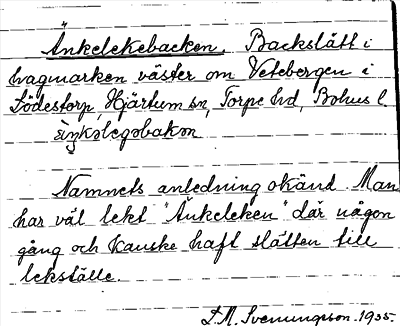 Änkelekebacken. Backslätt i
hagmarken väster om Vetebergen i
Södestorp, Hjärtum sn, Torpe hd, Bohus l.
Namnets anledning okänd. Man
har väl lekt "Änkeleken" där någon
gång och kanske haft slätten till
lekställe.
L. M. Svenungsson. 1935.